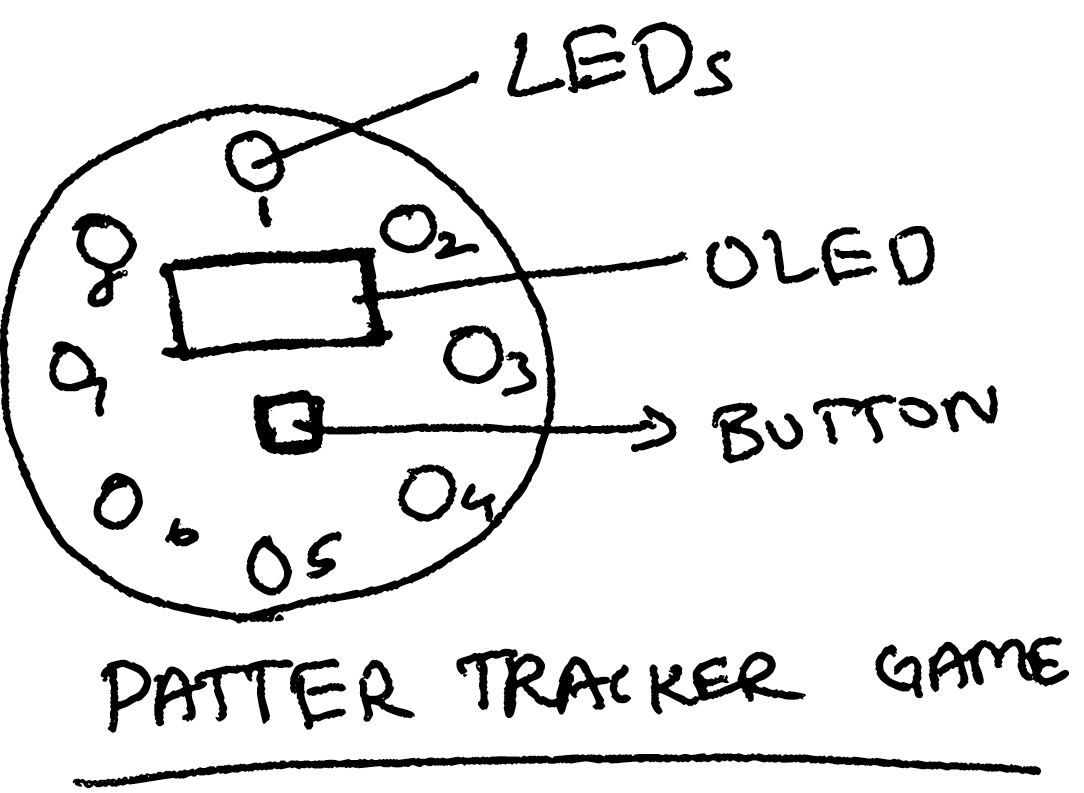 LEDs
1
2
OLED
8
3
7
BUTTON
4
6
5
PATTER TRACKER GAME